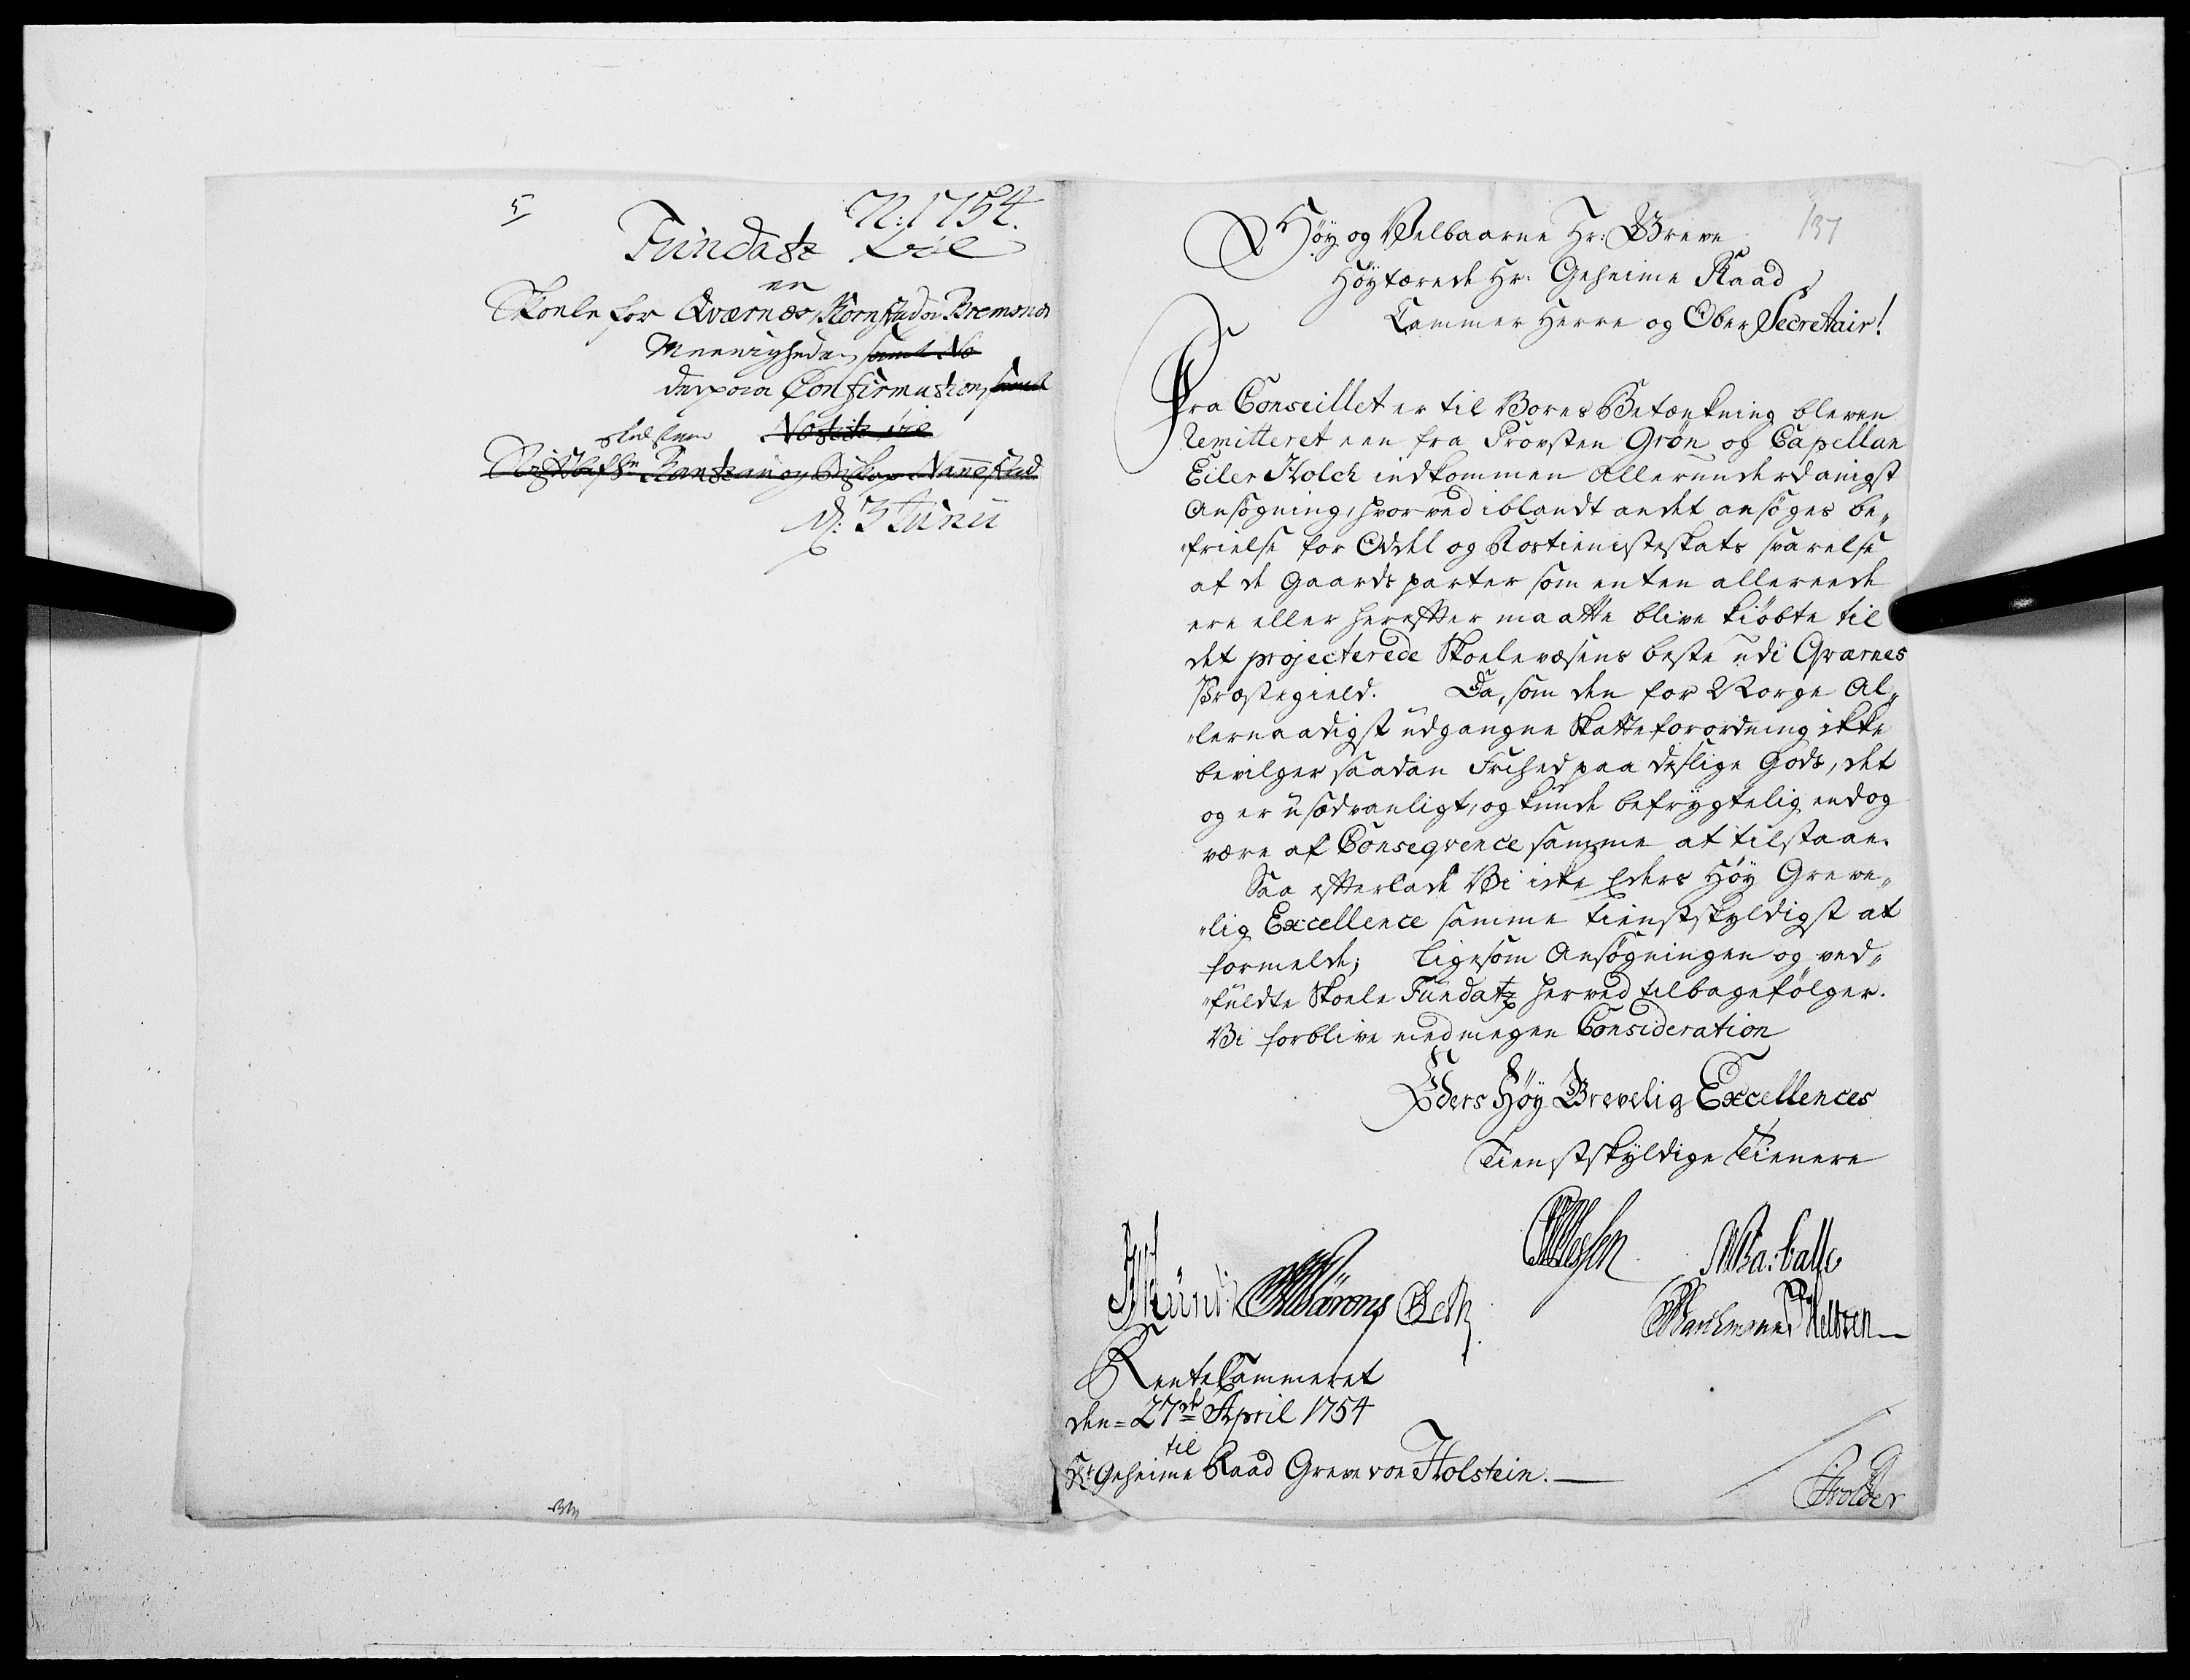 5/
N: 1754.
Fundatz til
en
Skoele for Qværnes, Kornstad og Bremsnes
Meenigheder, samt No
derpaa Confirmation, samt
Notitz til
Stiftbefhr. Rantzau og Biskop Nannestad
d: 3 Junii
137
Høy og Velbaarne Hr: Greve
Høytærede Hr: Geheime Raad
Cammer Herre og Ober Secretair!
Fra Conseillet er til Vores Betænkning bleven
remitteret een fra Provsten Grøn og Capellan
Eiler Holck indkommen Allerunderdanigst
Ansøgning, hvorved iblandt andet ansøges be„
„frielse for Odel og Rostienisteskats svarelse
af de Gaards parter som enten allereede
ere eller herefter maatte blive kiøbte til
det projecterede Skoelevæsens beste udi Qværnes
Præstegield. Da, som den for Norge Al„
„lernaadigst udgangne Skatteforordning ikke
bevilger saadan Frihed paa deslige Gods, det
og er usædvanligt, og kunde befrygtelig endog
være af Conseqvence samme at tilstaae.
Saa efterlade Vi icke Eders Høy Greve„
„lig Excellence samme tienstskyldigst at
formelde; ligesom Ansøgningen og ved„
„fuldte Skoele Fundatz herved tilbagefølger.
Vi forblive med megen Consideration
Eders Høy Grevelig Excellences
Tienstskyldige Tienere
Rente Cammeret
den 27de April 1754
til
Hr Geheime Raad Greve von Holstein.
Holder